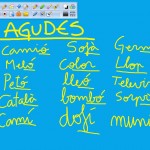 AGUDES
Camió Sofà Germ
Meló Color
Petó lleó Televi
Català bombó
Camí dofí mun